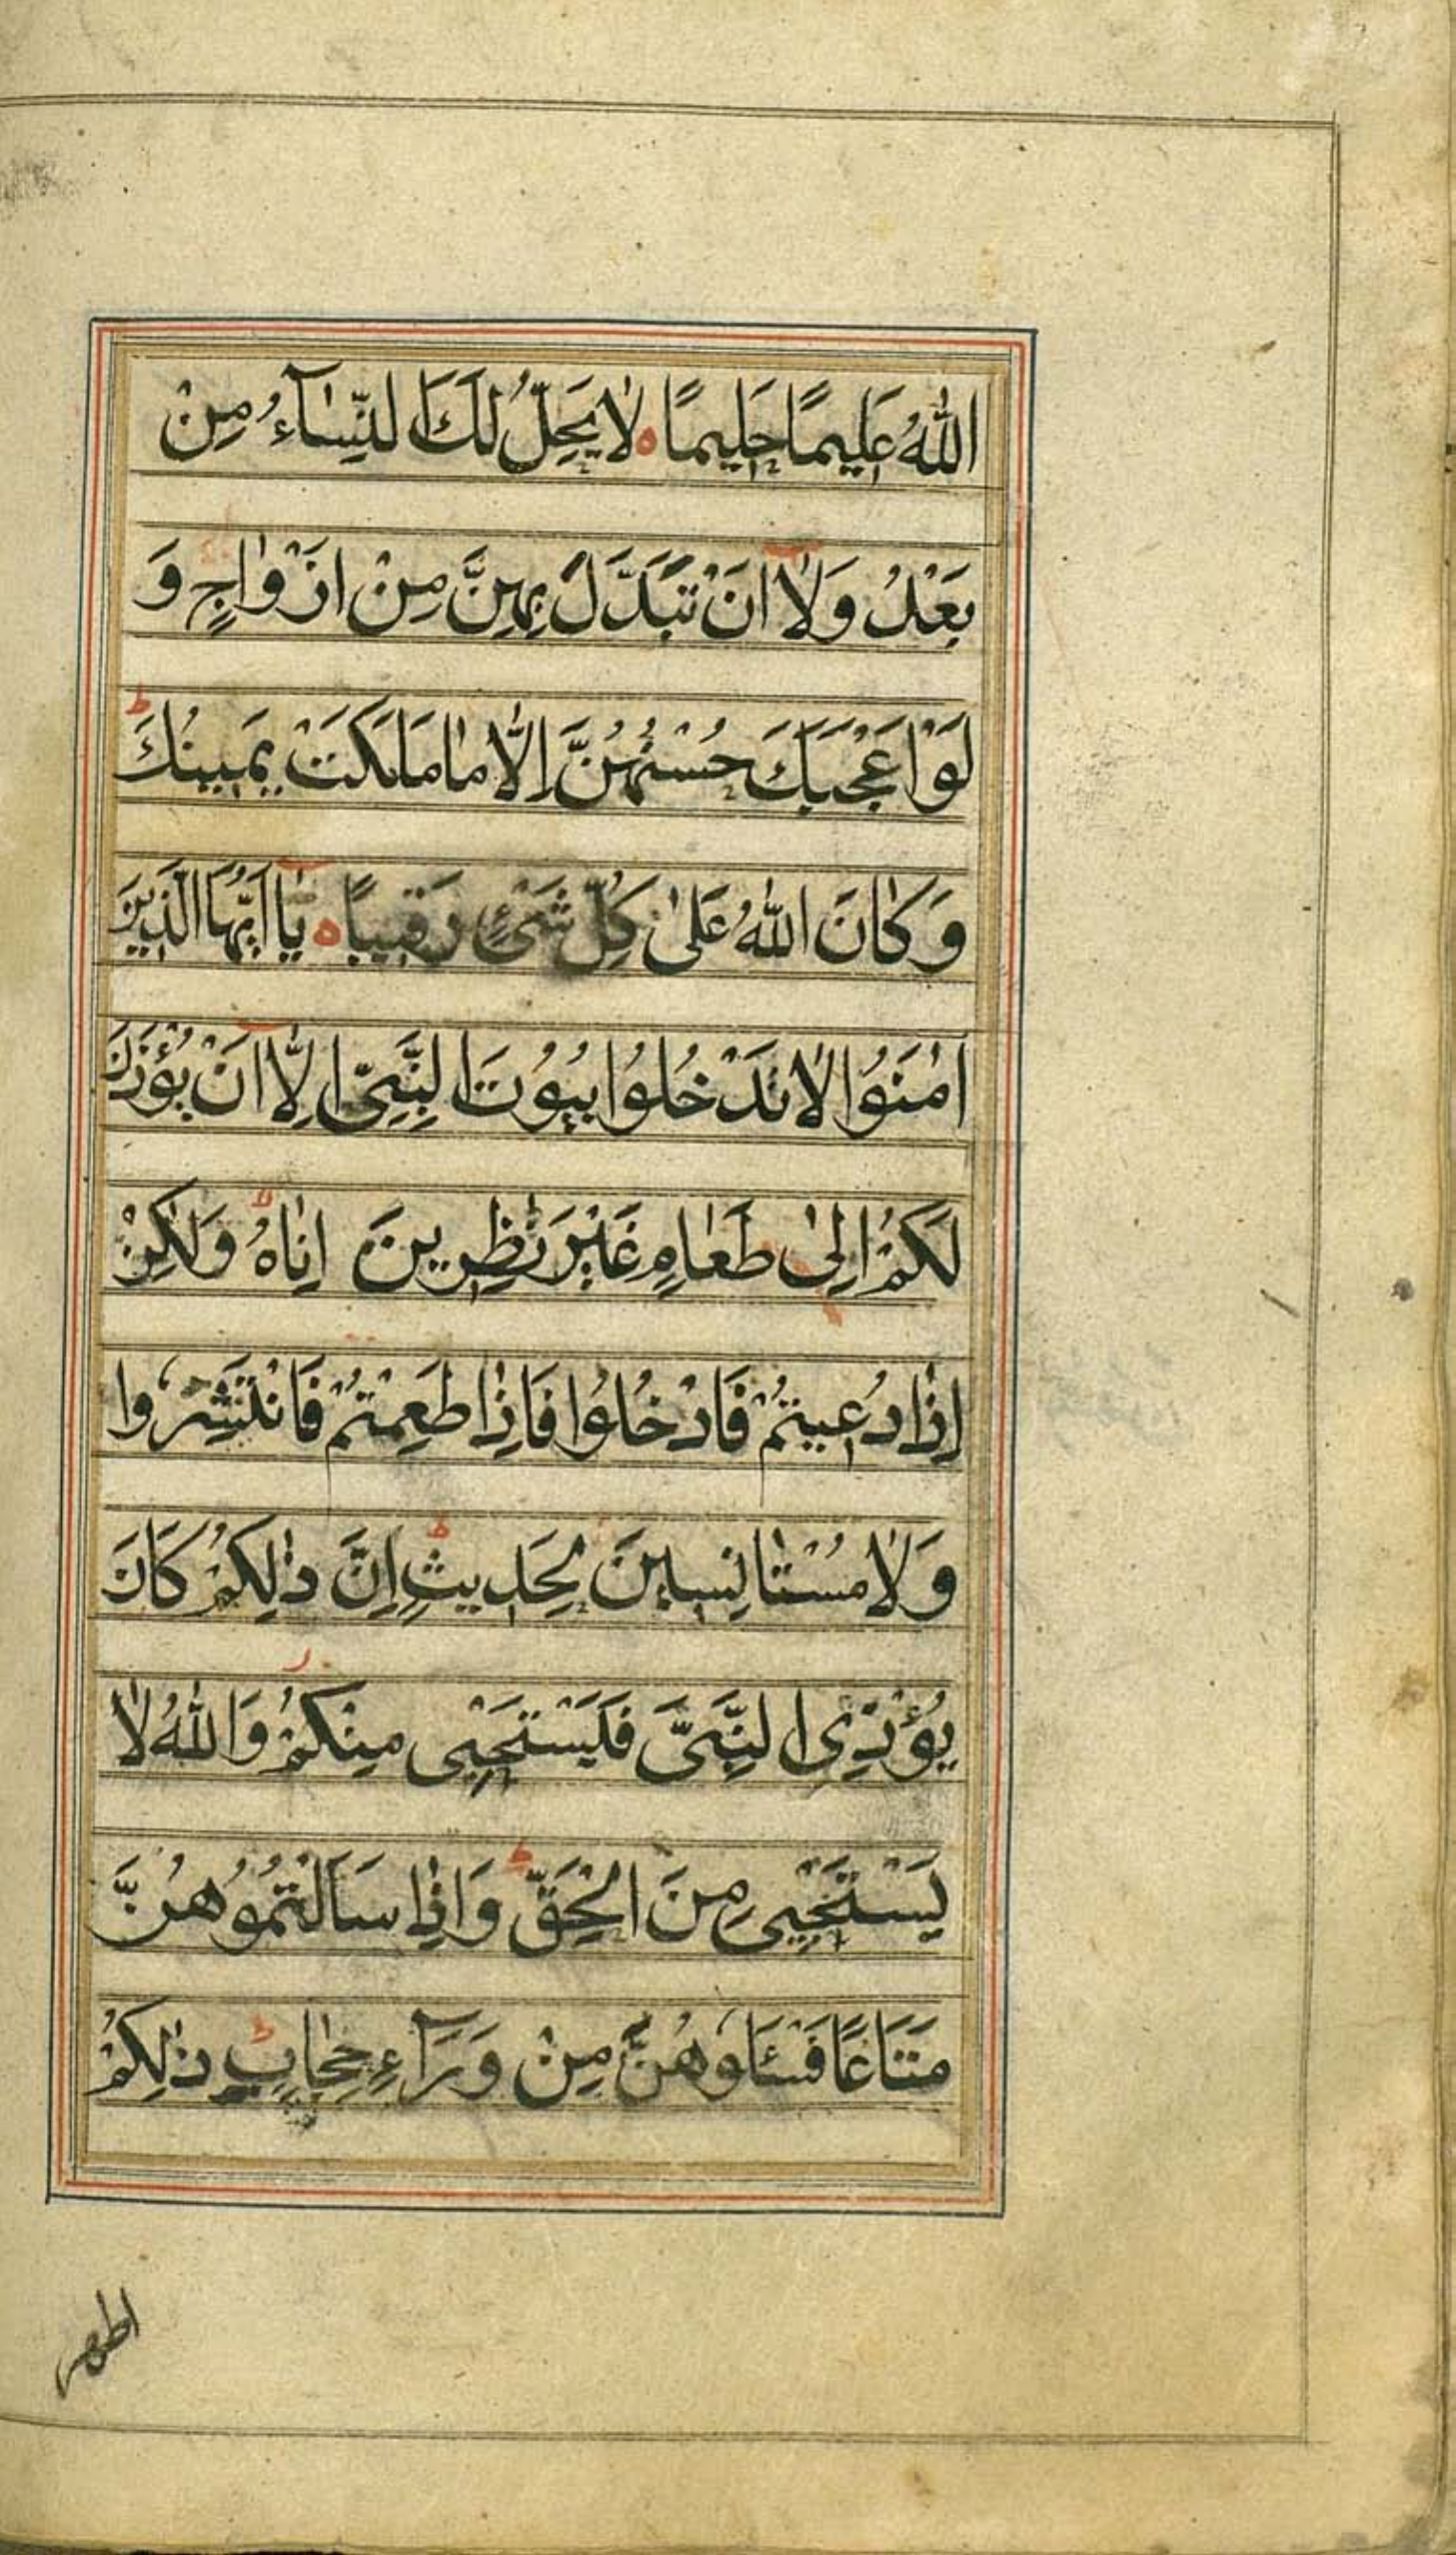 اللّٰهُ عَلِيمًا حَلِيمًا ه لَا يَحِلُّ لَكَ النِّسَآءُ مِنْ
بَعْدُ وَلَا اَنْ تَبَدَّلَ بِهِنَّ مِنْ اَزْوَاجٍ وَ
لَوْ اَعْجَبَكَ حُسْنُهُنَّ اِلَّا مَا مَلَكَتْ يَمِينُكَ ط
وَكَانَ اللّٰهُ عَلٰى كُلِّ شَيْءٍ رَقِيبًا ه يَا اَيُّهَا الَّذِينَ
اٰمَنُوا لَا تَدْخُلُوا بُيُوتَ النَّبِيِّ اِلَّا اَنْ يُؤْذَنَ
لَكُمْ اِلٰى طَعَامٍ غَيْرَ نٰظِرِينَ اِنَاهُ لا وَلٰكِنْ
اِذَا دُعِيتُمْ فَادْخُلُوا فَاِذَا طَعِمْتُمْ فَانْتَشِرُوا
وَلَا مُسْتَانِسِينَ لِحَدِيثٍ ط اِنَّ ذٰلِكُمْ كَانَ
يُؤْذِي النَّبِيَّ فَيَسْتَحْيِي مِنْكُمْ ز وَاللّٰهُ لَا
يَسْتَحْيِي مِنَ الْحَقِّ ط وَاِذَا سَاَلْتُمُوهُنَّ
مَتَاعًا فَسْـَٔلُوهُنَّ مِنْ وَرَآءِ حِجَابٍ ط ذٰلِكُمْ
اطهر